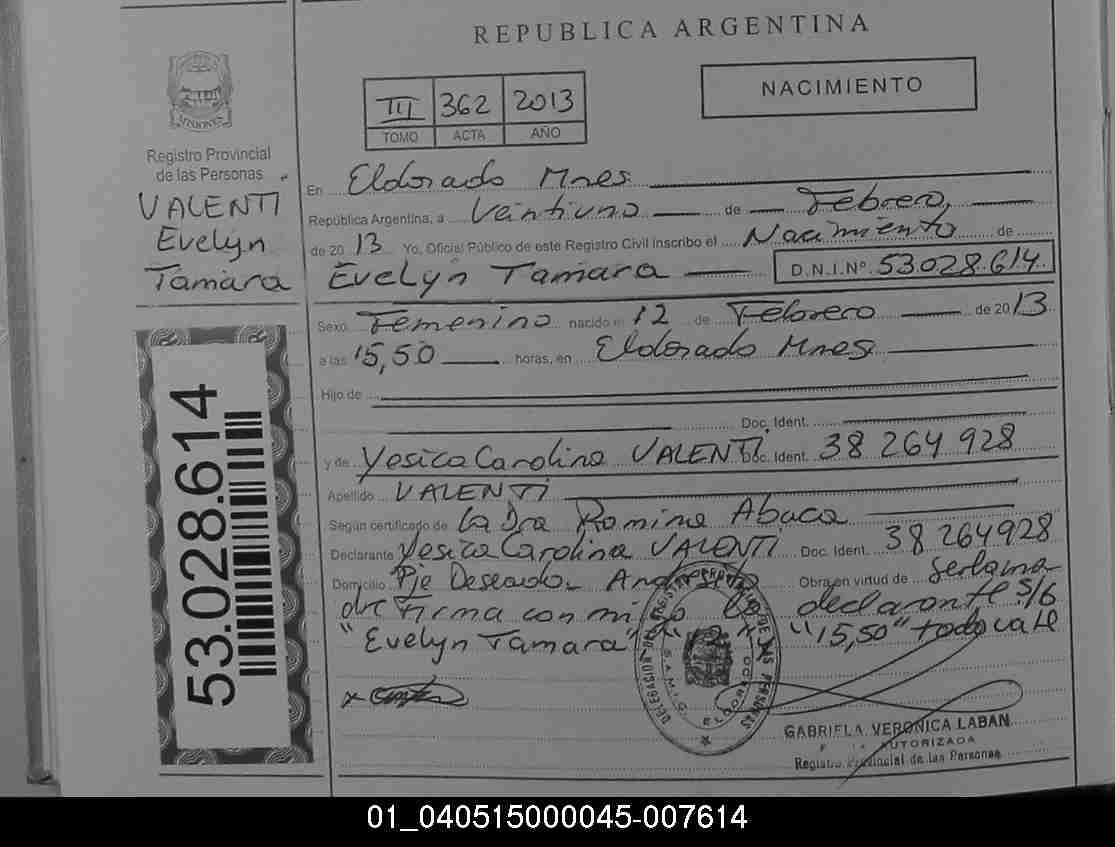 REPUBLICA ARGENTINA
MISIONES
Registro Provincial
de las Personas
VALENTI
Evelyn
Tamara
53.028.614
III 362 2013
TOMO ACTA AÑO
NACIMIENTO
En Eldorado Mnes
República Argentina, a Veintiuno de Febrero
de 2013 Yo, Oficial Público de este Registro Civil inscribo el Nacimiento de
Evelyn Tamara D.N.I.Nº 53028.614
Sexo Femenino nacido el 12 de Febrero de 2013
a las 15,50 horas, en Eldorado Mnes
Hijo de
Doc. Ident.
y de Yesica Carolina VALENTI Doc. Ident. 38 264 928
Apellido VALENTI
Según certificado de La Dra Romina Abaca
Declarante Yesica Carolina VALENTI Doc. Ident. 38 264928
Domicilio Pje Deseado Obra en virtud de ser la ma
dre Firma con mi declarante S/b
"Evelyn Tamara" "15,50" todo vale
ELDORADO
GABRIELA VERONICA LABAN
AUTORIZADA
Registro Provincial de las Personas
01_040515000045-007614